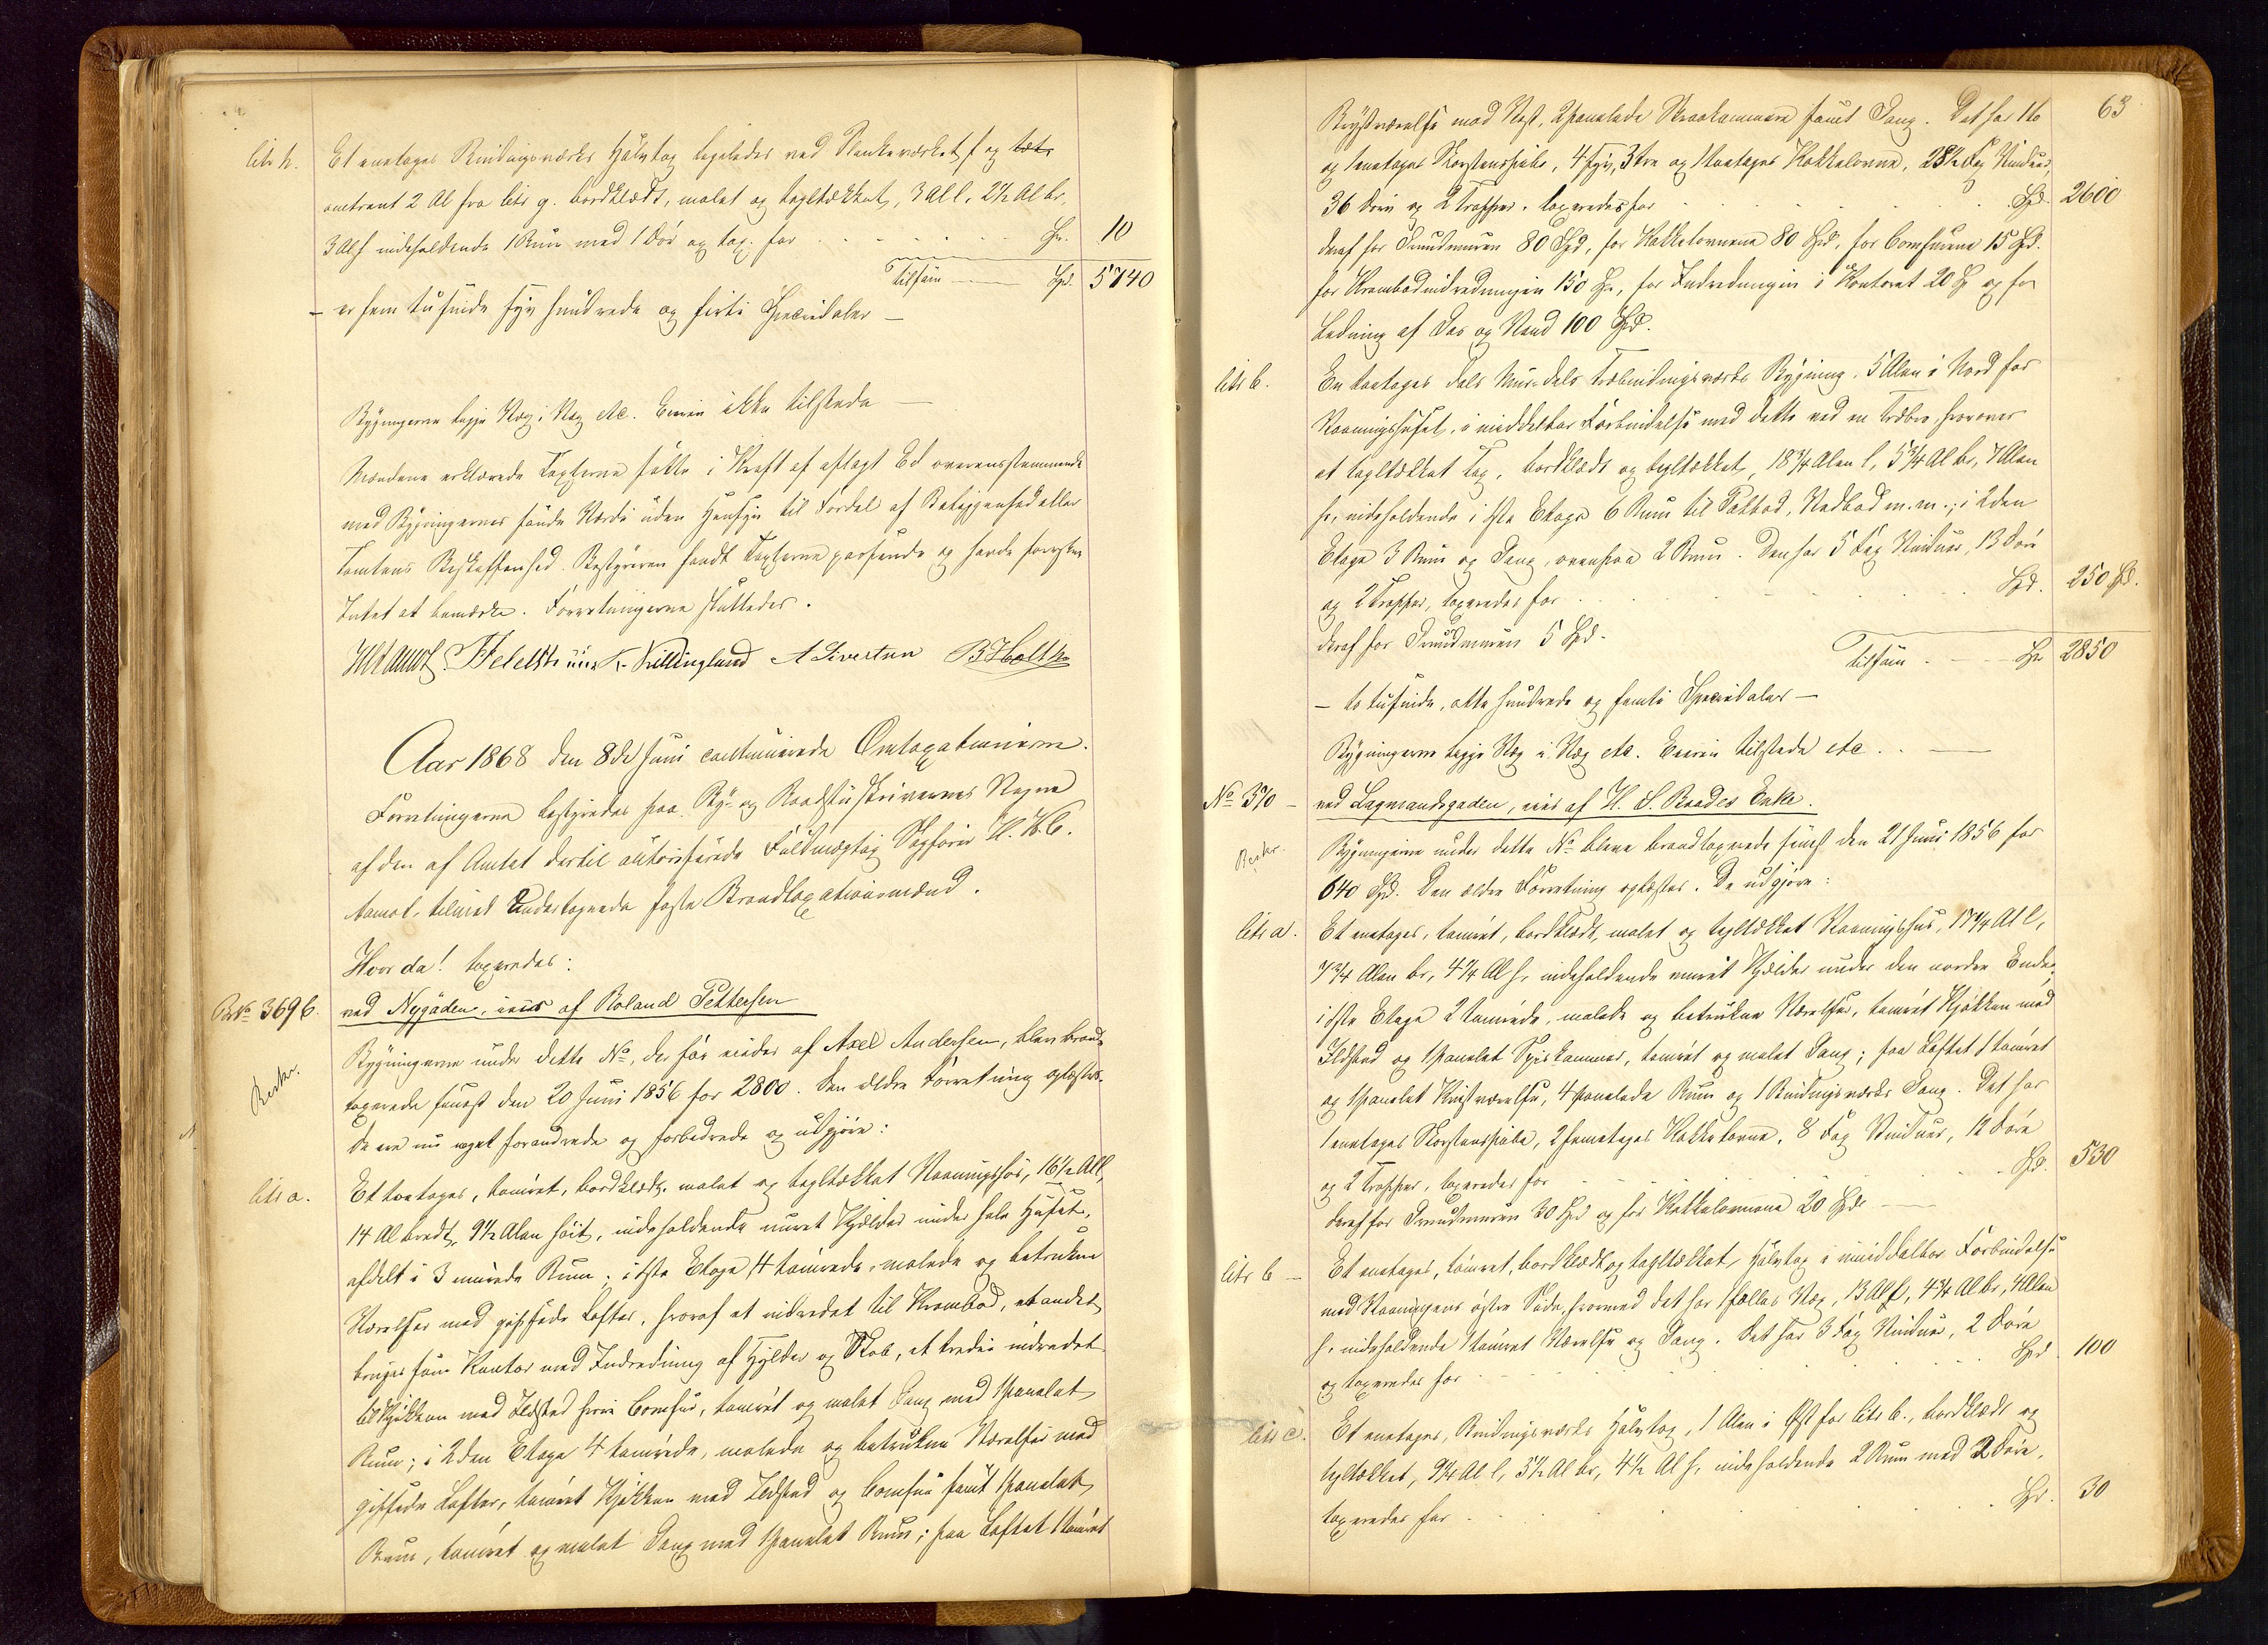 litr h. Et enetages Bindingsværks Halvtag ligeledes ved Plankeværket f og tæt
omtrent 2 Al fra litr g. bordklædt, malet og tegltækket, 3 Al l. 2½ Al br.
3 Al h indeholdende 1 Rum med 1 Dør og tax. for Sp. 10
Tilsam Spd. 5740
– er fem tusinde syv hundrede og firti Speciedaler –
Bygningerne ligge Væg i Væg etc. Eieren ikke tilstede –
Mændene erklærede Taxterne satte i Kraft af aflagt Ed overensstemmende
med Bygningernes sande Værdi uden Hensyn til Fordel af Beliggenhed eller
Tomtens Beskaffenhed. Bestyreren fandt Taxterne passende og havde forresten
Intet at bemærke. Forretningerne sluttedes.
Killingland A Sivertsen B Holth
Aar 1868 den 8de Juni continuerede Omtaxationerne.
Forretningerne bestyredes paa By- og Raadstuskriverens Vegne
af den af Amtet dertil autoriserede Fuldmægtig Sagfører H. H. C.
tilligemed Undertegnede faste Brandtaxationsmænd.
Hvor da! taxeredes:
B No 369 b. ved Nygaden, eies af Roland Pettersen
Beskr. Bygningerne under dette No, der før eiedes af Axel Andersen, blev brand-
taxerede senest den 20 Juni 1856 for 2800. Den ældre Forretning oplæstes.
De ere nu noget forandrede og forbedrede og udgjøre:
litr a. Et toetages, tømret, bordklædt, malet og tegltækket Vaaningshus, 16½ Al l,
14 Al bredt, 9½ Alen høit, indeholdende muret Kjælder under hele Huset,
afdelt i 3 murede Rum; i 1ste Etage 4 tømrede, malede og betrukne
Værelser med gipsede Lofter, hvoraf et indredet til Krambod, et andet
bruges som Kontor med Indredning af Hylder og Skab, et tredie indredet
til Kjøkken med Ildsted hvori Comfur, tømret og malet Gang med 1 panelet
Rum; i 2den Etage 4 tømrede, malede og betrukne Værelser med
gipsede Lofter, tømret Kjøkken med Ildsted og Comfur samt 1 panelet
Rum, tømret og malet Gang med 1 panelet Rum; paa Loftet 1 tømret
63
Kvistværelse mod Vest, 2 panelede Skraakammere samt Gang. Det har 1 to
og 1 enetages Skorstenspibe, 4 fyr, 3 tre og 1 toetages Kakkelovne, 28½ Fag Vinduer,
36 Døre og 2 Trapper. taxeredes for Spd. 2600
deraf for Grundmuren 80 Spd, for Kakkelovnene 80 Spd, for Comfurene 15 Spd.
for Krambodindredningen 150 Sp, for Indredningen i Kontoret 20 Sp og for
Ledning af Gas og Vand 100 Spd.
litr b. En toetages dels Mur- dels Træbindingsværks Bygning, 5 Alen i Nord for
Vaaningshuset, i middelbar Forbindelse med dette ved en Træbro hvorover
et tegltækket Tag, bordklædt og tegltækket, 18¾ Alen l, 5¾ Al br, 7 Alen
h, indeholdende i 1ste Etage 6 Rum til Pakbod, Vedbod m.m.; i 2den
Etage 3 Rum og Gang, ovenpaa 2 Rum. Den har 5 Fag Vinduer, 13 Døre
og 2 Trapper, taxeredes for Spd. 250 Sp.
deraf for Grundmuren 5 Spd.
Tilsam Sp 2850
– to tusinde, otte hundrede og femti Speciedaler –
Bygningerne ligge Væg i Væg etc. Eieren tilstede etc.
No 370 – ved Lagmandsgaden, eies af H. S. Baades Enke.
Beskr. Bygningerne under dette No bleve brandtaxerede senest den 21 Juni 1856 for
640 Spd. Den ældre Forretning oplæstes. De udgjøre:
litr a. Et enetages, tømret, bordklædt, malet og tegltækket Vaaningshus, 17¾ Al l,
7¾ Alen br, 4¼ Al h, indeholdende muret Kjælder under den nordre Ende,
i 1ste Etage 2 tømrede, malede og betrukne Værelser, tømret Kjøkken med
Ildsted og 1 panelet Spiskammer, tømret og malet Gang; paa Loftet 1 tømret
og 1 panelet Kvistværelse, 4 panelede Rum og 1 Bindingsværks Gang. Det har
1 enetages Skorstenspibe, 2 femetages Kakkelovne, 8 Fag Vinduer, 12 Døre
og 2 Trapper, taxeredes for Spd. 530
deraf for Grundmuren 30 Spd og for Kakkelovnene 20 Spd.
litr b – Et enetages, tømret, bordklædt og tegltækket, Halvtag i umiddelbar Forbindelse
med Vaaningens østre Side, hvormed det har fælles Væg, 13 Al l, 4¾ Al br, 4 Alen
h. indeholdende 1 tømret Værelse og Gang. Det har 3 Fag Vinduer, 2 Døre
og taxeredes for Spd 100
litr c. Et enetages, Bindingsværks Halvtag, 1 Alen i Øst for litr b., bordklædt og
tegltækket, 9¼ Al l, 3½ Al br, 4½ Al h. indeholdende 2 Rum med 2 Døre,
taxeredes for Sp. 30